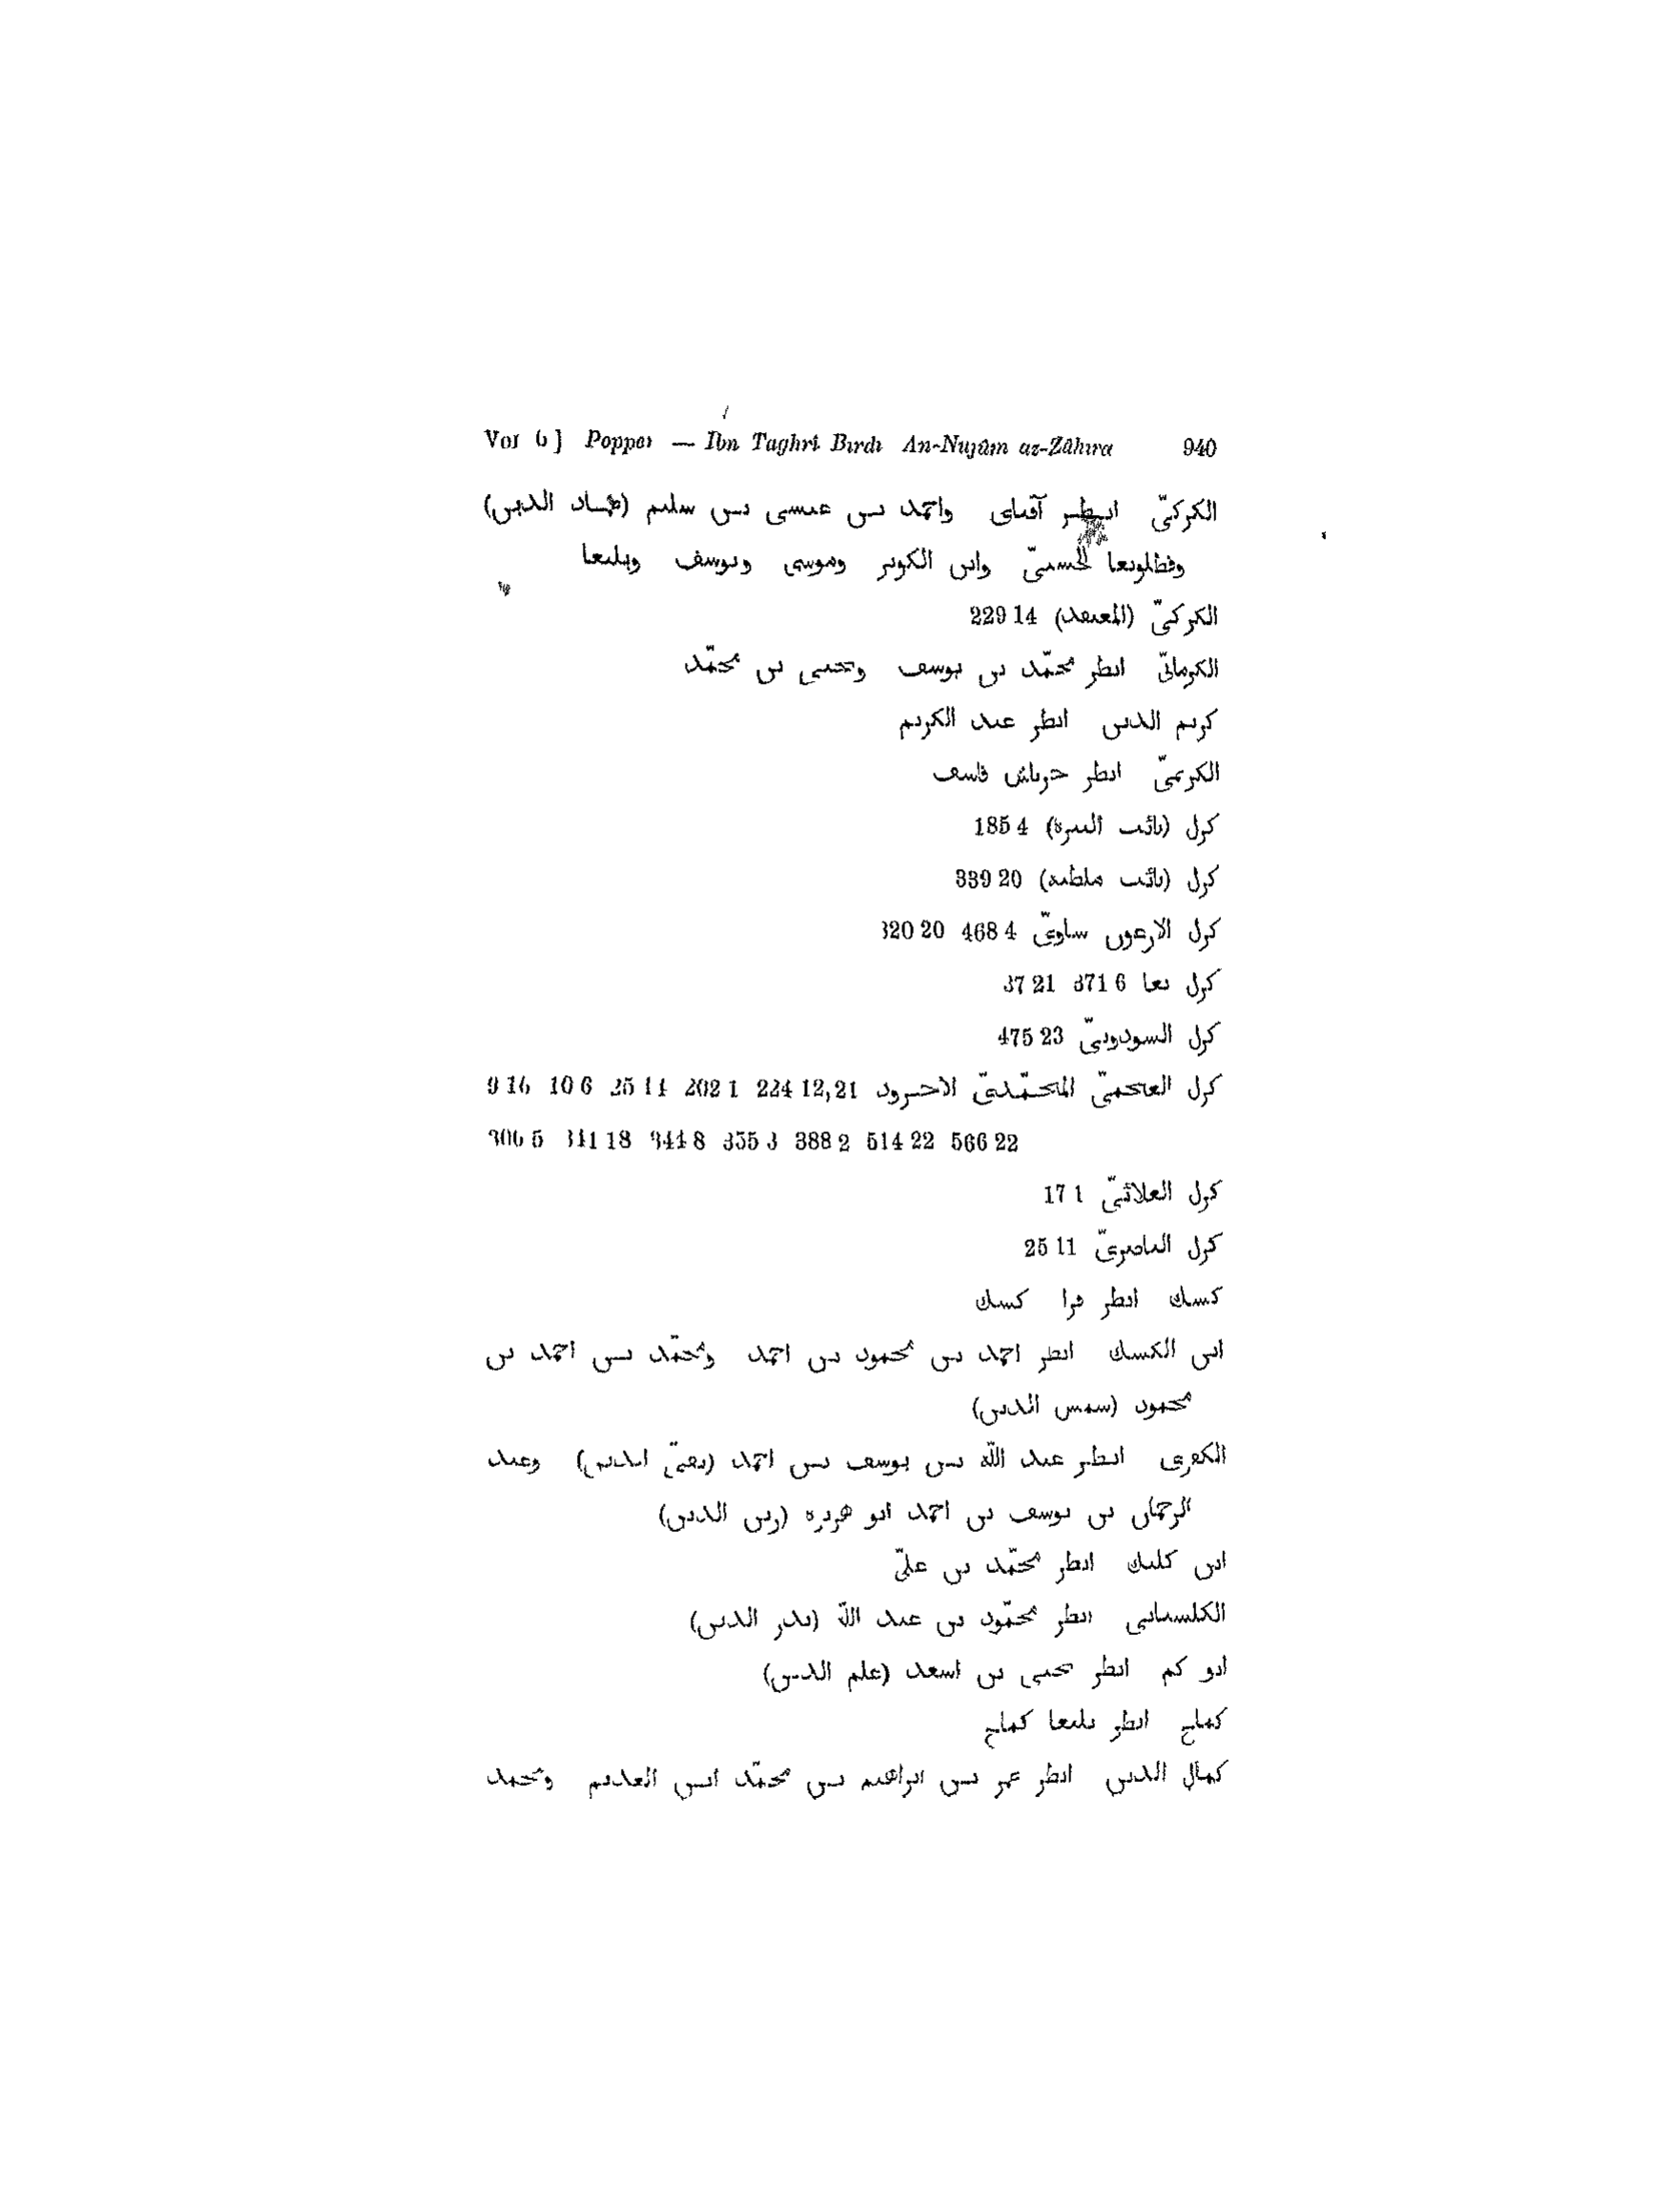 Vol 6] Popper — Ibn Taghrî Birdî An-Nujûm az-Zâhira 940
الكركىّ انظر آقباى واحمد بن عيسى بن سليم (عماد الدين)
وقطلوبغا الحسنىّ وابن الكويز وموسى ويوسف ويلبغا
الكركىّ (المعتقد) 229 14
الكرمانىّ انظر محمّد بن يوسف ويحيى بن محمّد
كريم الدين انظر عبد الكريم
الكريمىّ انظر جرباش قاسق
كزل (نائب البيرة) 185 4
كزل (نائب ملطية) 339 20
كزل الارغون شاوىّ 468 4 320 20
كزل بغا 371 6 37 21
كزل السودونىّ 475 23
كزل العجمىّ المحمّدىّ الاجرود 224 12,21 202 1 25 14 10 6 9 16
566 22 514 22 388 2 355 3 344 8 341 18 306 5
كزل العلائىّ 17 1
كزل الناصرىّ 25 11
كسك انظر قرا كسك
ابن الكشك انظر احمد بن محمود بن احمد ومحمّد بن احمد بن
محمود (شمس الدين)
الكفرى انظر عبد اللّه بن يوسف بن احمد (تقىّ الدين) وعبد
الرحمان بن يوسف بن احمد ابو هريرة (زين الدين)
ابن كلبك انظر محمّد بن علىّ
الكلستانى انظر محمّود بن عبد اللّه (بدر الدين)
ابو كم انظر يحيى بن اسعد (علم الدين)
كماج انظر يلبغا كماج
كمال الدين انظر عمر بن ابراهيم بن محمّد ابن العديم ومحمد